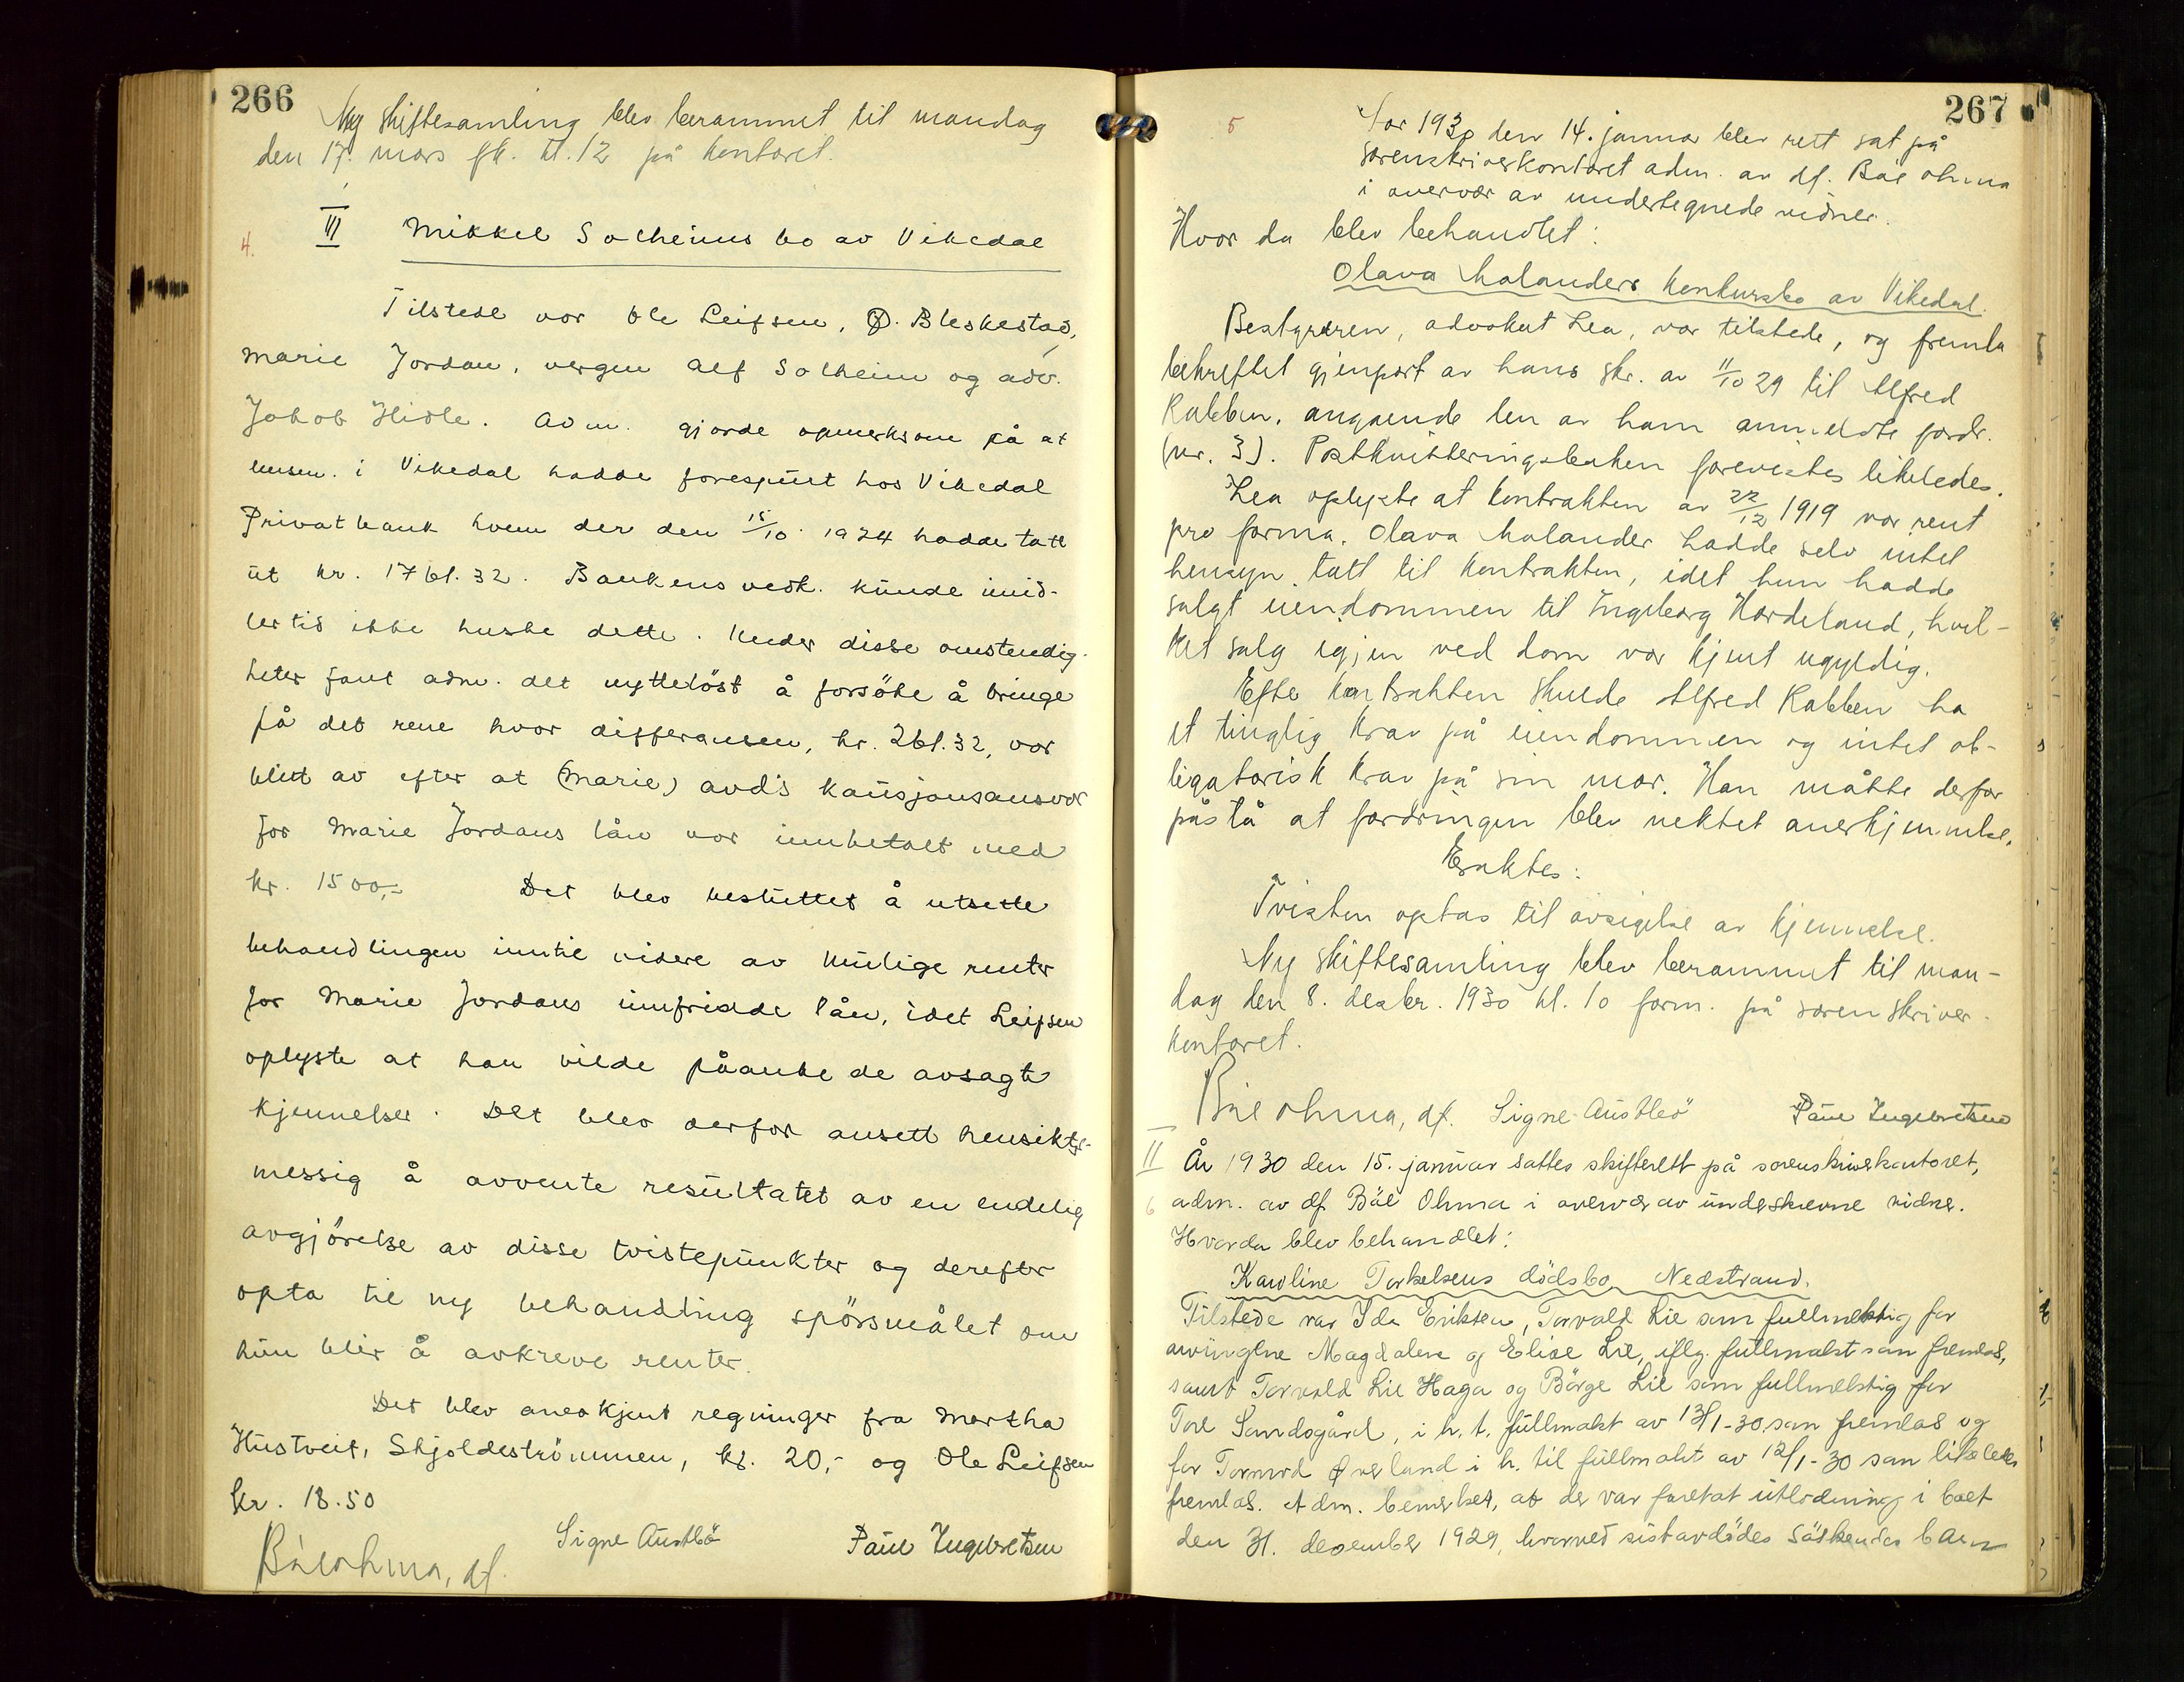 266
Ny skiftesamling blev berammet til mandag
den 17. mars fk. kl. 12 på kontoret.
4. III Mikkel Solheims bo av Vikedal
Tilstede var Ole Leifsen, O. Bleskestad,
Marie Jordan, vergen Alf Solheim og adv.
Jakob Hidle. Adm. gjorde opmerksom på at
lensm. i Vikedal hadde forespurt hos Vikedal
Privatbank hvem der den 15/10 1924 hadde tatt
ut kr. 1761.32. Bankens vedk. kunde imid-
lertid ikke huske dette. Under disse omstendig-
heter fant adm. det nytteløst å forsøke å bringe
på det rene hvor differansen, kr. 261.32, var
blitt av efter at (Marie) avd's kausjonsansvar
for Marie Jordans lån var innbetalt med
kr. 1500,- Det blev besluttet å utsette
behandlingen inntil videre av mulige renter
for Marie Jordans innfridde lån, idet Leifsen
oplyste at han vilde påanke de avsagte
kjennelser. Det blev derfor ansett hensikts-
messig å avvente resultatet av en endelig
avgjørelse av disse tvistepunkter og derefter
opta til ny behandling spørsmålet om
hun blir å avkreve renter.
Det blev anerkjent regninger fra Martha
Hustveit, Skjoldestrømmen, kr. 20,- og Ole Leifsen
kr. 18.50
Båe Ohma, df. Signe Austbø Paul Ingebretsen
267
5 År 1930 den 14. januar blev rett sat på
sorenskriverkontoret adm. av df. Båe Ohma
i overvær av undertegnede vidner.
Hvor da blev behandlet:
Olava Malanders konkursbo av Vikedal.
Bestyreren, advokat Lea, var tilstede, og fremla
bekreftet gjenpart av hans skr. av 11/10 29 til Alfred
Rabben, angaende den av ham anmeldte fordr.
(nr. 3). Postkvitteringsboken forevistes likeledes.
Lea oplyste at kontrakten av 22/12 1919 var rent
pro forma. Olava Malander hadde selv intet
hensyn tatt til kontrakten, idet hun hadde
solgt eiendommen til Ingeborg Hordeland, hvil-
ket salg igjen ved dom var kjent ugyldig.
Efter kontrakten skulde Alfred Rabben ha
et tinglig krav på eiendommen og intet ob-
ligatorisk krav på sin mor. Han måtte derfor
påstå at fordringen blev nektet anerkjennelse.
Esaktes:
Tvisten optas til avsigelse av kjennelse.
Ny skiftesamling blev berammet til man-
dag den 8. desbr. 1930 kl. 10 form. på sorenskriver-
kontoret.
Båe Ohma, df. Signe Austbø Paul Ingebretsen
II År 1930 den 15. januar sattes skifterett på sorenskriverkontoret,
6 adm. av df Båe Ohma i overvær av underskrevne vidner.
Hvorda blev behandlet:
Karoline Torkelsens dödsbo Nedstrand.
Tilstede var Ida Eriksen, Torvald Lie som fullmektig for
arvingene Magdalene og Elise Lie, iflg. fullmakt som fremlas,
samt Torvald Lie Haga og Börge Lie som fullmektig for
Tore Sandsgård, i h. t. fullmakt av 13/1-30 som fremlas og
for Tormod Øverland i h. til fullmakt av 12/1-30 som likeledes
fremlas. Adm. bemerket, at der var foretat utlodning i boet
den 31. desember 1929, hvorved sistavdödes söskendes barn